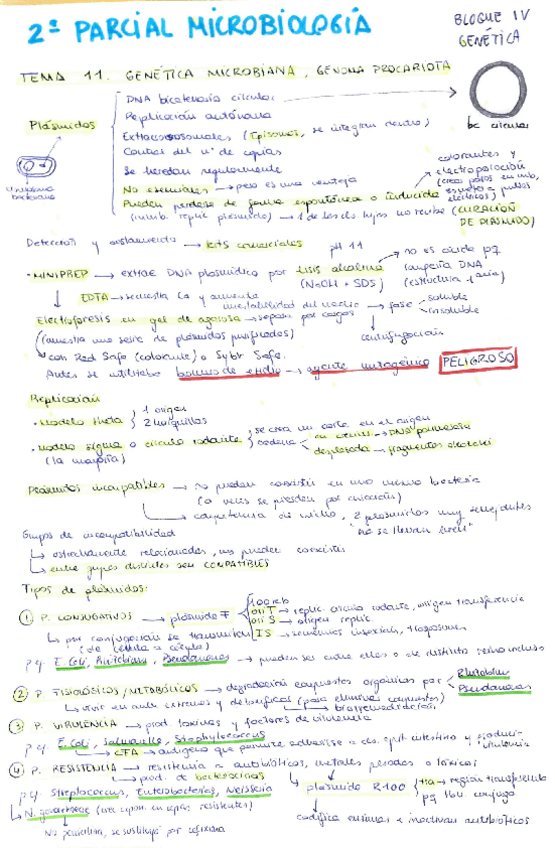 2º PARCIAL MICROBIOLOGÍA
BLOQUE IV
GENÉTICA
TEMA 11. GENÉTICA MICROBIANA, GENOMA PROCARIOTA
Plásmidos
DNA bicatenario circular
Replicación autónoma
Extracromosomales (Episomas, se integran dentro)
Control del nº de copias
Se heredan regularmente
No esenciales → pero es una ventaja
Pueden perderse de forma espontánea o inducida
(inhib. replic plásmido) → 1 de las cls hijas no recibe (CURACIÓN DE PLÁSMIDO)
bc circular
cromosoma
bacteriano
colorantes y
electroporación
Detección y aislamiento → kits comerciales
pH 11
• MINIPREP → extrae DNA plasmídico por lisis alcalina
(NaOH + SDS)
no es ácido pq
rompería DNA
EDTA → secuestra Ca y aumenta
inestabilidad
→ fase
soluble
insoluble
centrifugación
Electroforesis en gel de agarosa → separa por cargas
(muestra una serie de plásmidos purificados)
con Red Safe (colorante) o Sybr Safe.
Antes se utilizaba bromuro de etidio → agente mutagénico PELIGROSO
Replicación
• Modelo theta
1 origen
2 horquillas
• Modelo sigma o círculo rodante
(la mayoría)
se crea un corte en el origen
cadena
→ DNA polimerasa
desplazada → fragmentos okazaki
Plásmidos incompatibles → no pueden coexistir en una misma bacteria
(a veces se pierden por curación)
→ competencia de nicho, 2 plásmidos muy semejantes
"no se llevan bien"
Grupos de incompatibilidad
↳ estrechamente relacionados, no pueden coexistir
↳ entre grupos distintos son COMPATIBLES
Tipos de plásmidos:
① P. CONJUGATIVOS → plásmido F
100 kb
ori T → replic. círculo rodante, origen transferencia
ori S → origen replic.
IS → secuencias inserción, transposones
↳ por conjugación se transmiten
(de célula a célula)
pg E. Coli, Pseudomonas → pueden ser entre ellos o de distinto reino incluso
② P. FISIOLÓGICOS/METABÓLICOS → degradación compuestos orgánicos por
Rhizobium
Pseudomonas
↳ vivir en amb extremos y detoxificar (para eliminar compuestos)
↳ biorremediación
③ P. VIRULENCIA → prod. toxinas y factores de virulencia
pg E. Coli, Salmonella, Staphylococcus
↳ CFA → antígeno que permite adherirse a cls. epit. intestino y producir
virulencia
④ P. RESISTENCIA → resistencia a antibióticos, metales pesados o tóxicos
↳ prod. de bacteriocinas
pg Streptococcus, Enterobacterias, Neisseria
↳ plásmido R100
tra → región transferencia
↳ N. gonorrhoeae (una espn. en cepas resistentes)
↳ No penicilina, se sustituye por cefixima
codifica enzimas e inactivan antibióticos